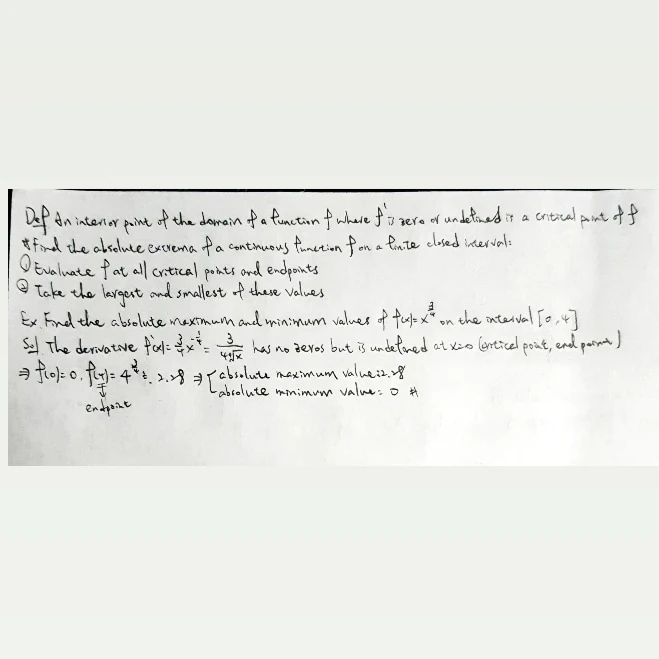 Def An interior point of the domain of a function f where f' is zero or undefined is a critical point of f
* Find the absolute extrema of a continuous function f on a finite closed interval:
① Evaluate f at all critical points and endpoints
② Take the largest and smallest of these values
Ex Find the absolute maximum and minimum values of f(x)=x^(3/4) on the interval [0,4]
Sol The derivative f'(x)=3/4 x^(-1/4) = 3/(4 ∜x) has no zeros but is undefined at x=0 (critical point, end point)
⇒ f(0)=0, f(4)=4^(3/4) ≒ 2.28 ⇒ { absolute maximum value: 2.28
absolute minimum value: 0 #
endpoint